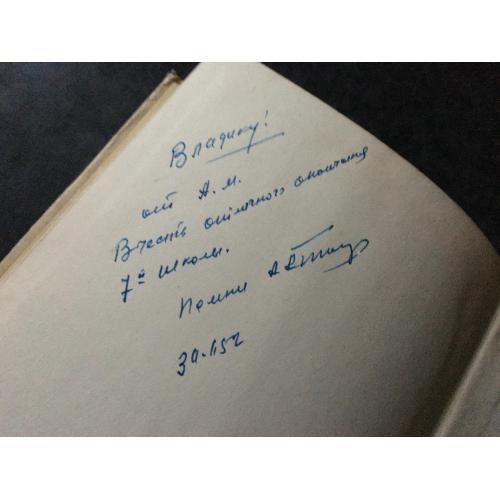 Владику!
от А. М.
В честь отличного окончания
7й школы.
Помни